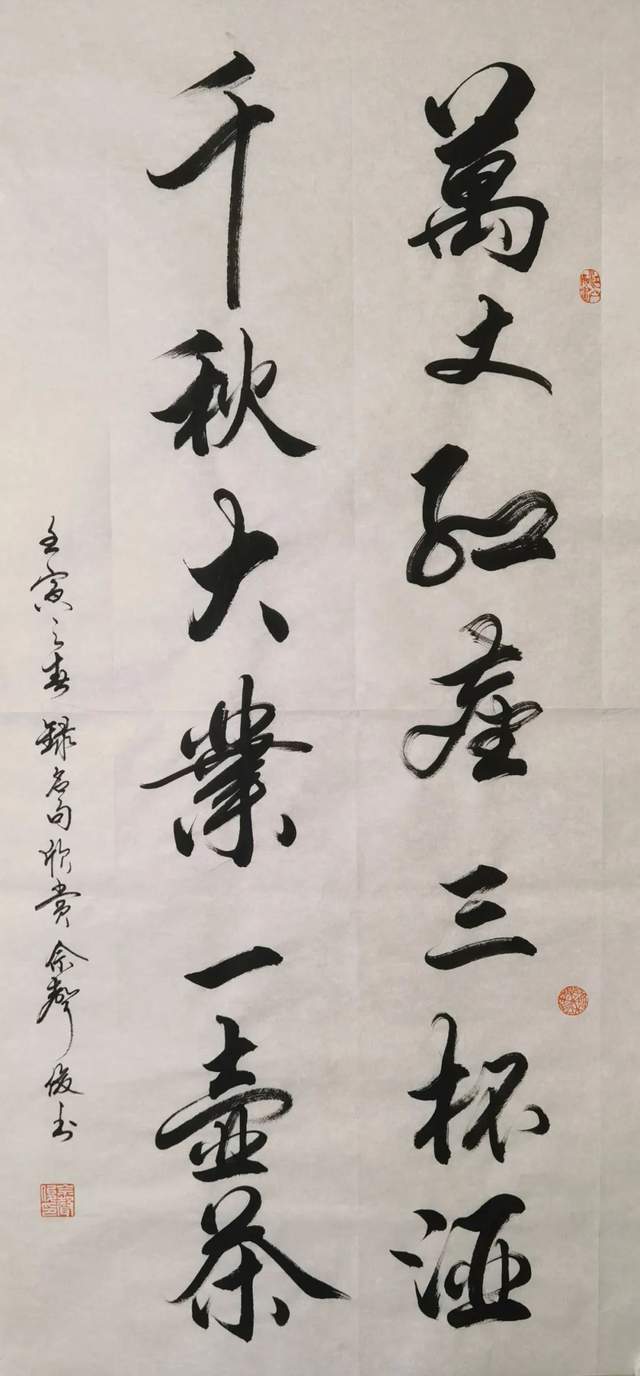 萬丈紅塵三杯酒
千秋大業一壺茶
壬寅之春 錄名句欣賞 余聲俊書